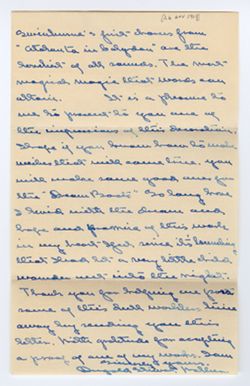 Swinburne's first chorus from
"Atalanta in Calydon" are the
loveliest of all sounds. The most
magical magic that words can
attain. It is a pleasure to
me to present to you one of
the of this decoration
I hope if you learn how to make
that will come true, you
will make some good ones for
the "Dream Boats" So long have
I lived with the dream and
hope and promise of this work
in my heart
that I had let a very little child
wander out into the night.
Thank you for helping me
some of this dull time
away by sending you this
letter. With gratitude for accepting
a proof of one of my works. I am
Sincerely yours